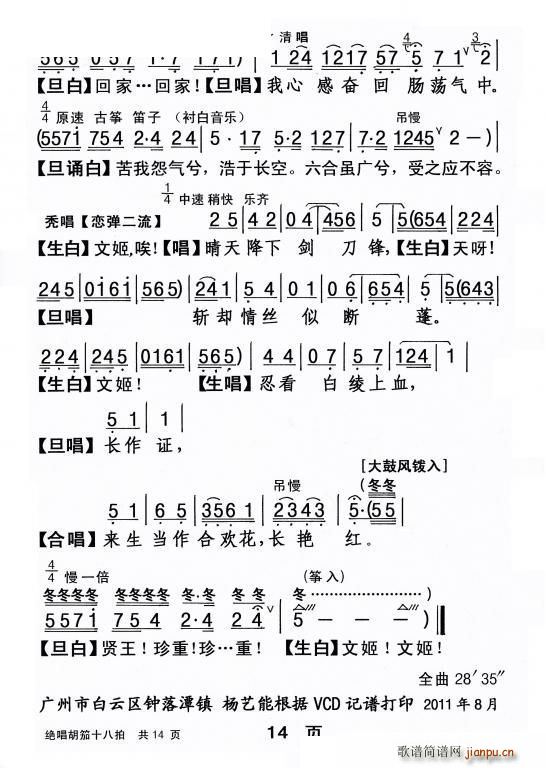 清唱
【旦白】回家…回家!【旦唱】我心 感奋 回 肠荡气 中。
4/4 原速 古筝 笛子 (衬白音乐) 吊慢
(5571 754 2·4 24 5·17 5·2 127 7·2 1245 2 - )
【旦诵白】苦我怨气兮,浩于长空。六合虽广兮,受之应不容。
1/4 中速稍快 乐齐
秃唱【恋弹二流】 2 5 4 2 0 4 456 5 5(654 224
【生白】文姬,唉!【唱】晴天降下 剑 刀 锋,【生白】天呀!
245 0161 565) 241 5 4 0 6 654 5 5(643
【旦唱】 斩却情丝 似 断 蓬。
224 245 0161 565) 24 4 0 7 5 7 124 1
【生白】文姬! 【生唱】忍看 白绫上血,
5 1 1
【旦唱】长作 证,
[大鼓风拨入]
吊慢 (冬冬
5 1 6 5 3561 2343 5·(55
【合唱】来生当作合欢花,长艳 红。
4/4 慢一倍 (筝入)
冬冬冬冬 冬冬冬冬 冬·冬 冬冬 冬……………)
5571 754 2·4 24 5 - - -
【旦白】贤王!珍重!珍…重! 【生白】文姬!文姬!
全曲 28′35″
广州市白云区钟落潭镇 杨艺能根据 VCD 记谱打印 2011年8月
绝唱胡笳十八拍 共14页 14 页
歌谱简谱网
jianpu.cn